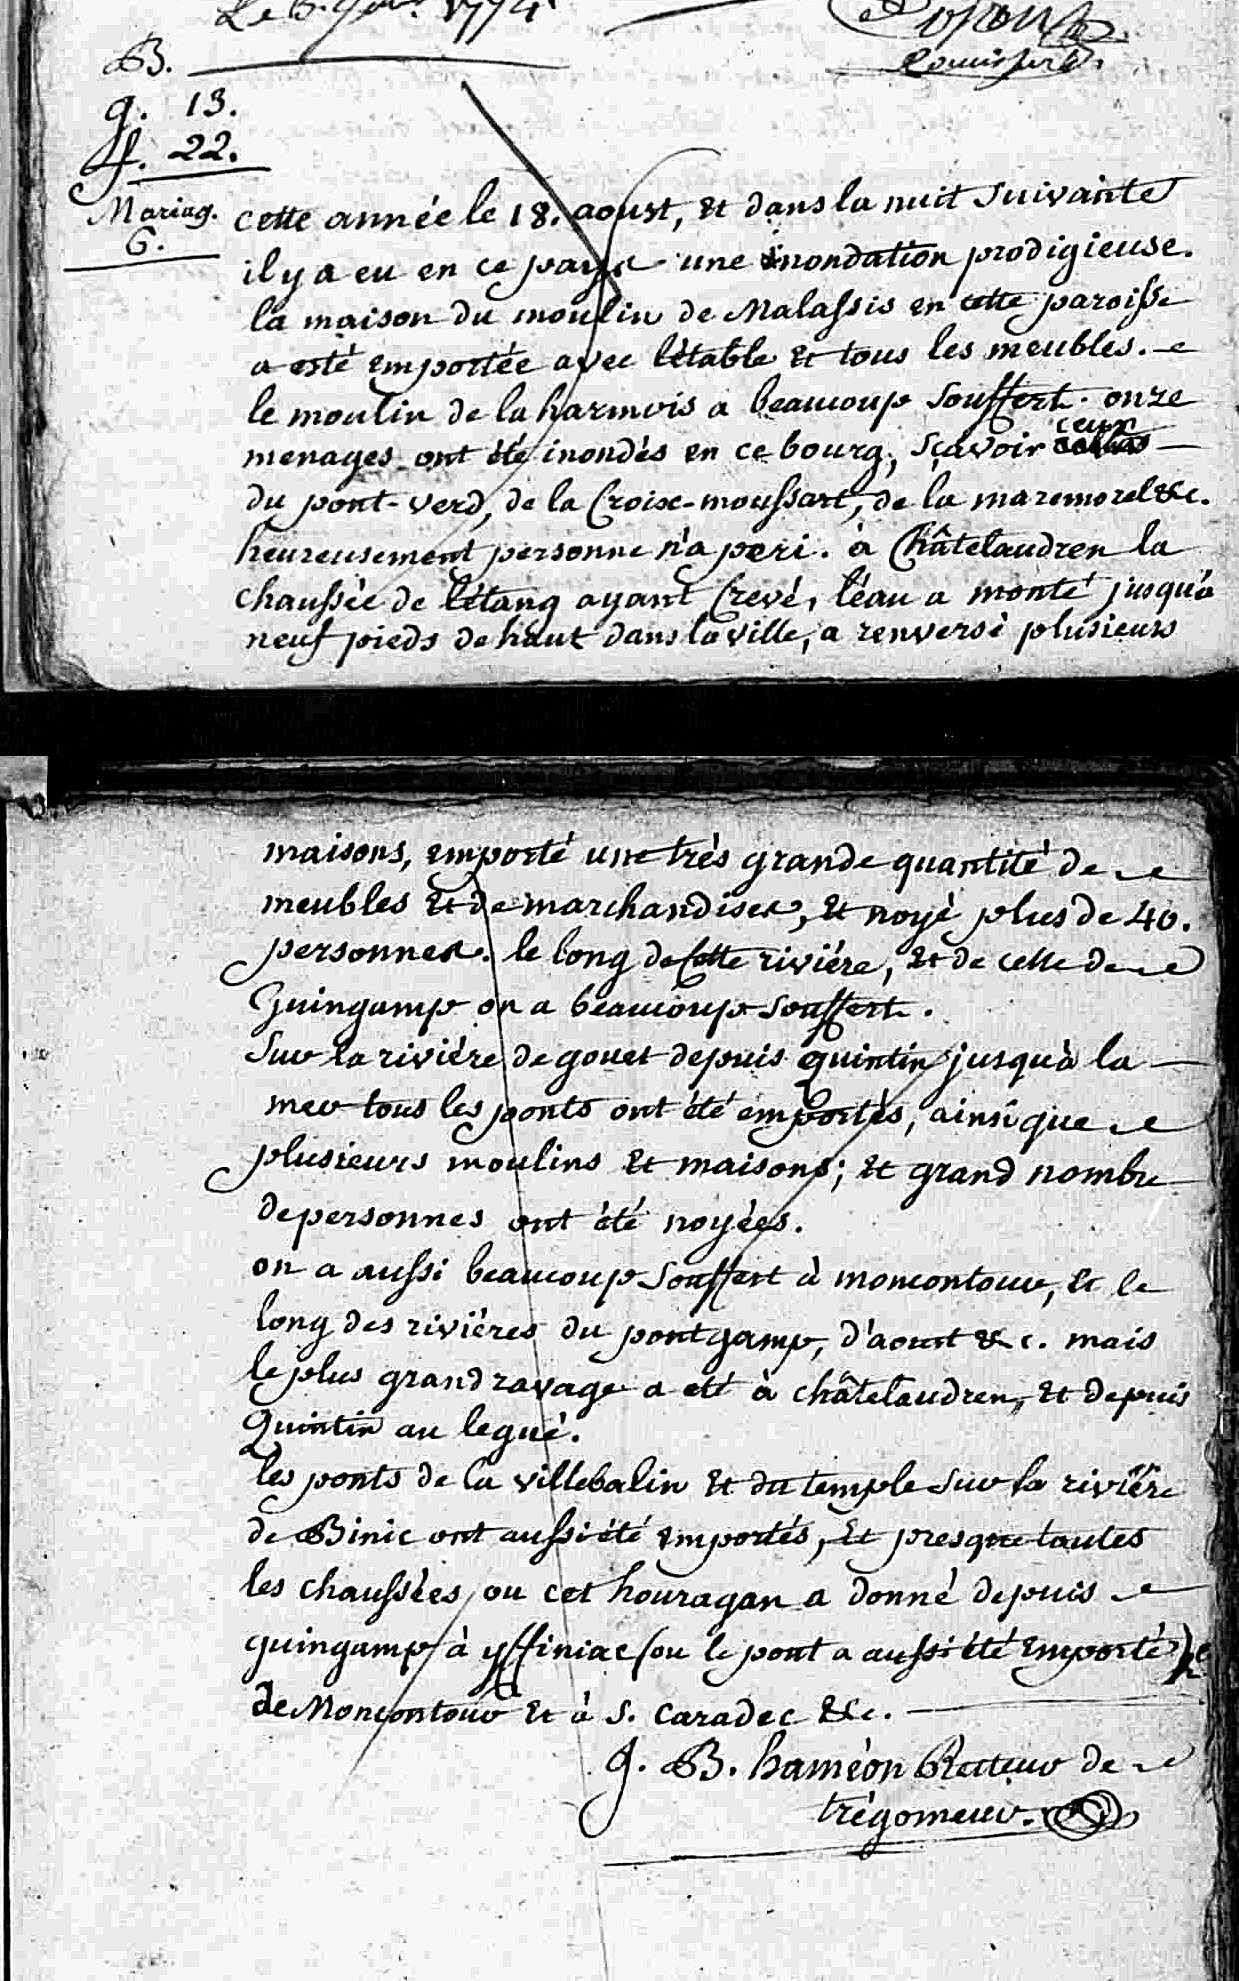 B.
g. 13.
f. 22.
Mariag.
6.
cette année le 18. aoust, et dans la nuit suivante
il y a eu en ce pays une inondation prodigieuse.
la maison du moulin de Malassis en cette paroisse
a esté emportée avec l'étable et tous les meubles.
le moulin de la harmois a beaucoup souffert. onze
menages ont été inondés en ce bourg, sçavoir ceux
du pont-verd, de la Croix-moussart, de la maremorel &c.
heureusement personne n'a peri. à Châtelaudren la
chaussée de l'étang ayant Crevé, l'éau a monté jusqu'à
neuf pieds de haut dans la ville, a renversé plusieurs
maisons, emporté une très grande quantité de
meubles et de marchandises, et noyé plus de 40.
personnes. le long de Cette riviére, et de celle de
Guingamp on a beaucoup souffert.
Sur la riviére de gouet depuis quintin jusqu'à la
mer tous les ponts ont été emportés, ainsi que
plusieurs moulins et maisons; et grand nombre
de personnes ont été noyées.
on a aussi beaucoup souffert à moncontour, et le
long des riviéres du pontgamp, d'aoust &c. mais
le plus grand ravage a eté à châtelaudren, et depuis
Quintin au legué.
les ponts de la villebalin et du temple sur la riviére
de Binic ont aussi été emportés, et presque toutes
les chaussées ou cet houragan a donné depuis
guingamp à yffiniac (ou le pont a aussi été emporté) &
de Moncontour et à S. Caradec &c.
J. B. haméon Recteur de
trégomeur.